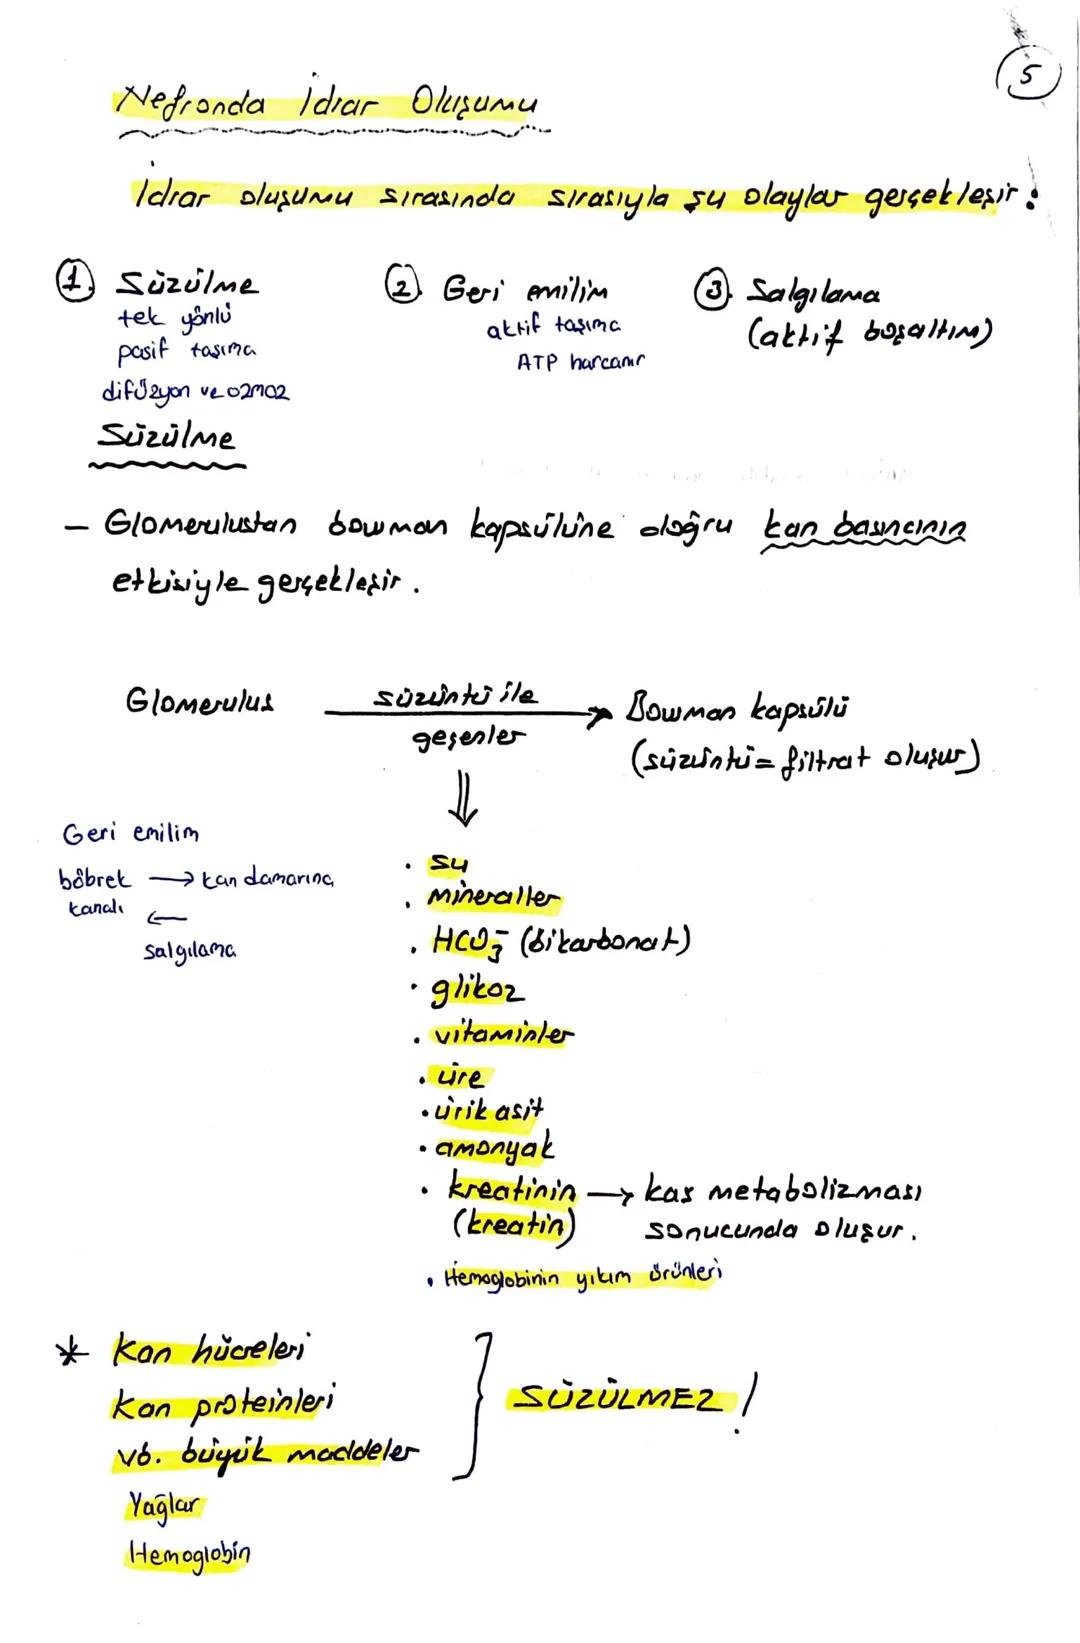 5
Nefronda İdrar Oluşumu
İdrar oluşumu sırasında sırasıyla şu olaylar gerçekleşir:
1. Süzülme
tek yönlü
pasif taşıma
difüzyon ve ozmoz
2. Geri emilim
aktif taşıma
ATP harcanır
3. Salgılama
(aktif boşaltım)
Süzülme
- Glomerulustan bowman kapsülüne doğru kan basıncının
etkisiyle gerçekleşir.
Glomerulus süzüntü ile geçenler → Bowman kapsülü
(süzüntü = filtrat oluşur)
⇓
Geri emilim
böbrek kanalı → kan damarına
←
salgılama
. su
. mineraller
. HCO₃⁻ (bikarbonat)
. glikoz
. vitaminler
. üre
. ürik asit
. amonyak
. kreatinin → kas metabolizması
(kreatin) sonucunda oluşur.
. Hemoglobinin yıkım ürünleri
* Kan hücreleri
Kan proteinleri
vb. büyük maddeler
} SÜZÜLMEZ!
Yağlar
Hemoglobin